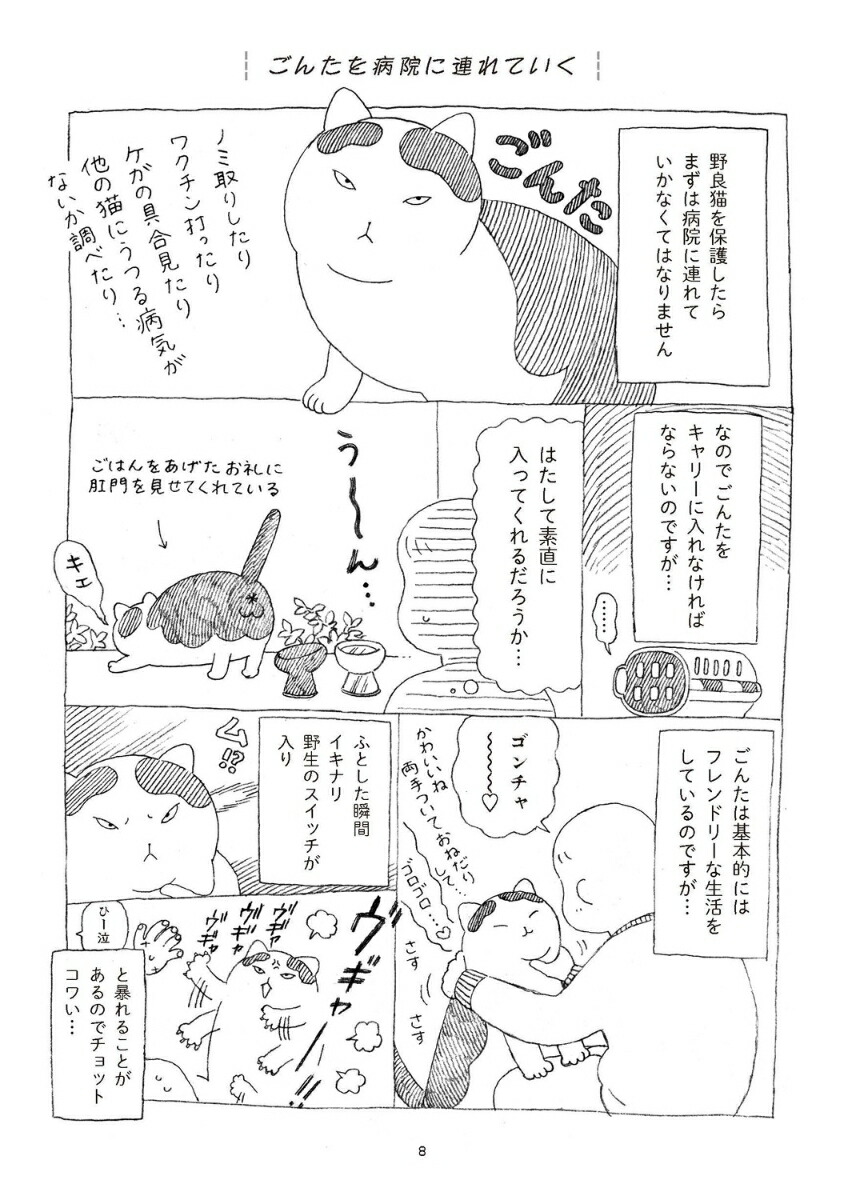 ごんたを病院に連れていく
野良猫を保護したら
まずは病院に連れて
いかなくてはなりません
ごんた
ノミ取りしたり
ワクチン打ったり
ケガの具合見たり
他の猫にうつる病気が
ないか調べたり…
なので ごんたを
キャリーに入れなければ
ならないのですが…
……
はたして素直に
入ってくれるだろうか…
う〜〜ん…
ごはんをあげた お礼に
肛門を見せてくれている
キェ
ごんたは基本的には
フレンドリーな生活を
しているのですが…
ゴンチャ
〜〜〜♡
かわいいね
両手ついておねだり
して…
ゴロゴロ…♡
さす
さす
ふとした瞬間
イキナリ
野生のスイッチが
入り
ム!?
ヴギャー!!
ヴギャ
ヴギャ
ヴギャ
ひー泣
と暴れることが
あるのでチョット
コワい…
8